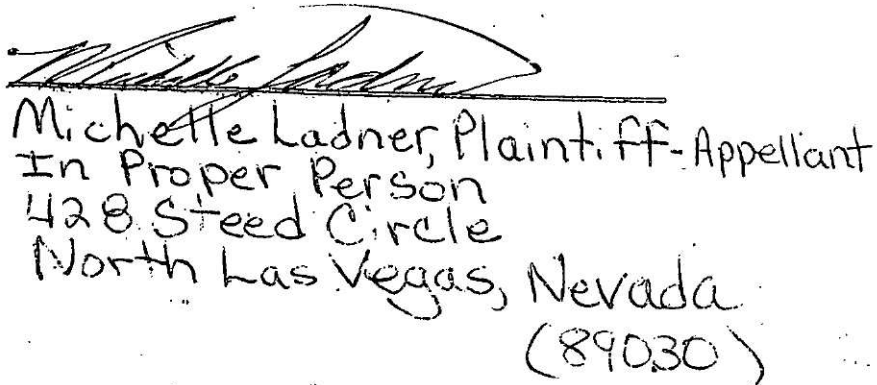 Michelle Ladner
Michelle Ladner, Plaintiff-Appellant
In Proper Person
428 Steed Circle
North Las Vegas, Nevada
(89030)